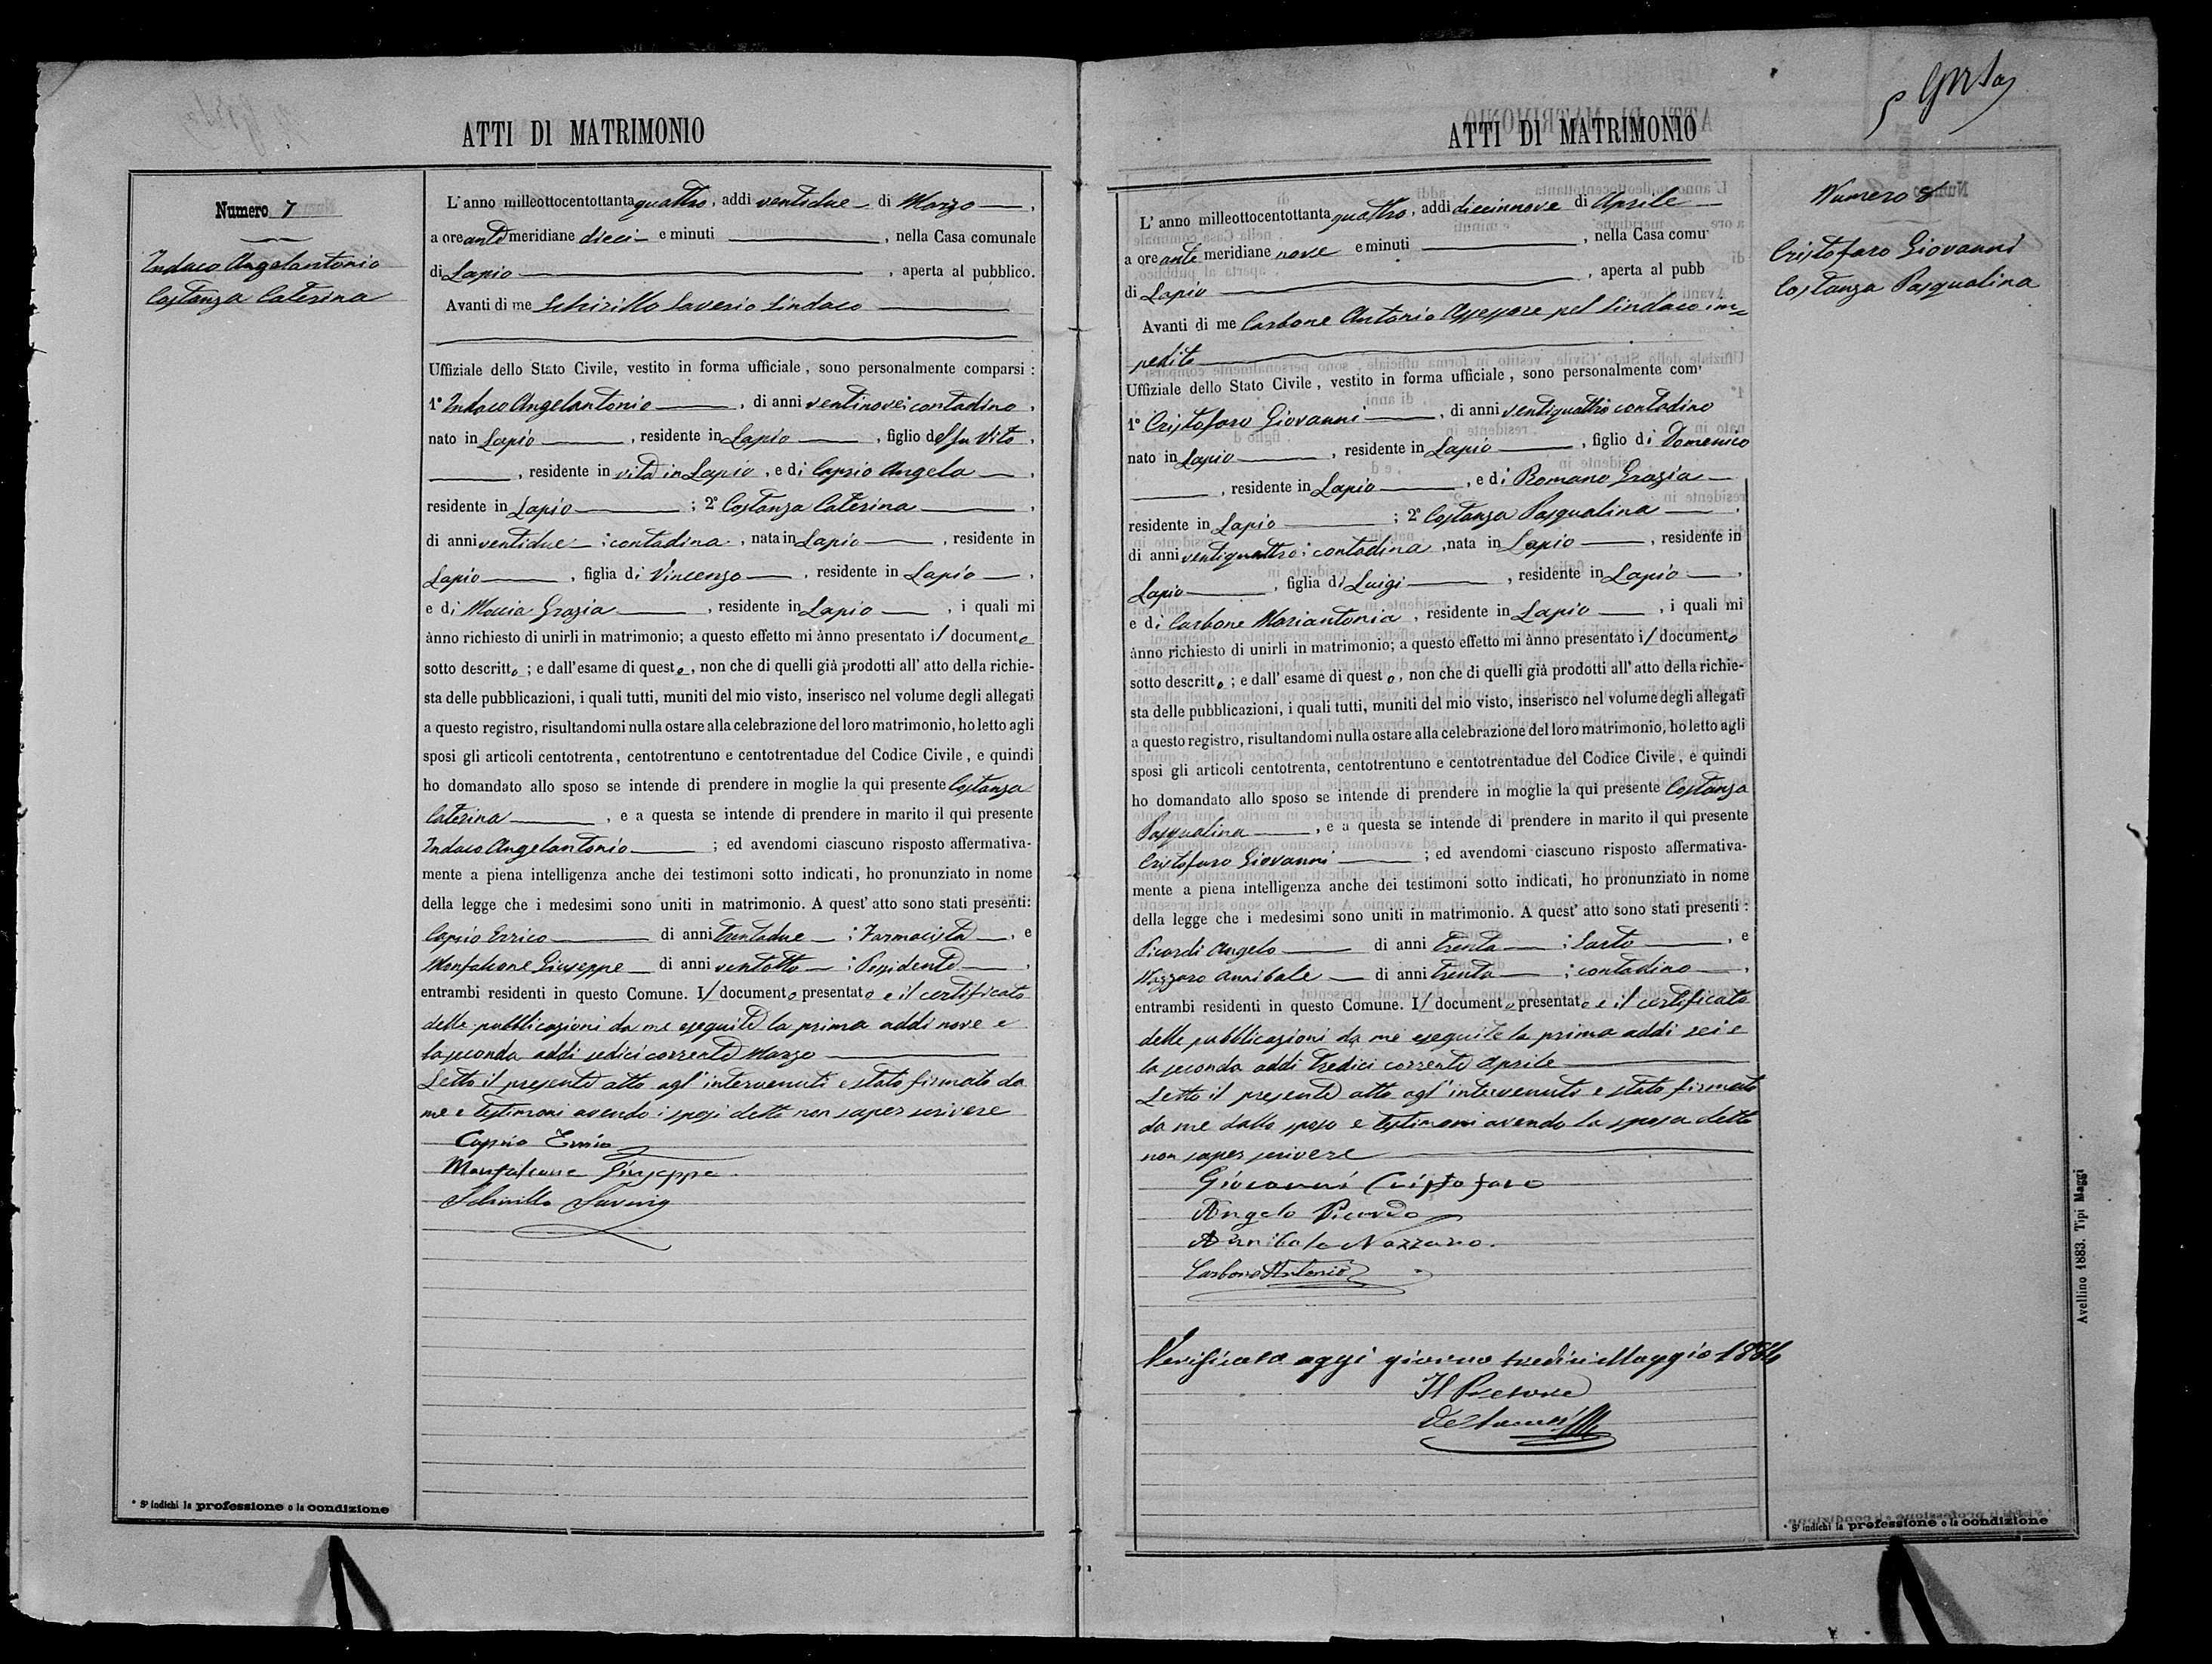 ATTI DI MATRIMONIO
Numero 7
Indaco Angelantonio
Costanza Caterina
L'anno milleottocentottantaquattro, addi ventidue di Marzo,
a ore anti meridiane dieci e minuti, nella Casa comunale
di Lapio, aperta al pubblico.
Avanti di me Schirillo Saverio Sindaco
Uffiziale dello Stato Civile, vestito in forma ufficiale, sono personalmente comparsi:
1° Indaco Angelantonio, di anni ventinove; contadino,
nato in Lapio, residente in Lapio, figlio del fu Vito,
, residente in vita in Lapio, e di Caprio Angela,
residente in Lapio; 2° Costanza Caterina,
di anni ventidue; contadina, nata in Lapio, residente in
Lapio, figlia di Vincenzo, residente in Lapio,
e di Moccia Grazia, residente in Lapio, i quali mi
ànno richiesto di unirli in matrimonio; a questo effetto mi ànno presentato il documento
sotto descritto; e dall'esame di questo, non che di quelli già prodotti all'atto della richie-
sta delle pubblicazioni, i quali tutti, muniti del mio visto, inserisco nel volume degli allegati
a questo registro, risultandomi nulla ostare alla celebrazione del loro matrimonio, ho letto agli
sposi gli articoli centotrenta, centotrentuno e centotrentadue del Codice Civile, e quindi
ho domandato allo sposo se intende di prendere in moglie la qui presente Costanza
Caterina, e a questa se intende di prendere in marito il qui presente
Indaco Angelantonio; ed avendomi ciascuno risposto affermativa-
mente a piena intelligenza anche dei testimoni sotto indicati, ho pronunziato in nome
della legge che i medesimi sono uniti in matrimonio. A quest'atto sono stati presenti:
Caprio Errico di anni trentadue; Farmacista, e
Monfalcone Giuseppe di anni ventotto; Possidente,
entrambi residenti in questo Comune. Il documento presentato e il certificato
delle pubblicazioni da me eseguite la prima addi nove e
la seconda addi sedici corrente Marzo
Letto il presente atto agl'intervenuti e stato firmato da
me e testimoni avendo i sposi detto non saper scrivere
Caprio Errico
Monfalcone Giuseppe
Schirillo Saverio
* S'indichi la professione o la condizione
ATTI DI MATRIMONIO
Numero 8
Cristofaro Giovanni
Costanza Pasqualina
L'anno milleottocentottantaquattro, addi diecinnove di Aprile
a ore anti meridiane nove e minuti, nella Casa comu
di Lapio, aperta al pubb
Avanti di me Carbone Antonio Assessore pel Sindaco im=
pedito
Uffiziale dello Stato Civile, vestito in forma ufficiale, sono personalmente com
1° Cristofaro Giovanni, di anni ventiquattro contadino
nato in Lapio, residente in Lapio, figlio di Domenico
, residente in Lapio, e di Romano Grazia
residente in Lapio; 2° Costanza Pasqualina,
di anni ventiquattro; contadina, nata in Lapio, residente in
Lapio, figlia di Luigi, residente in Lapio,
e di Carbone Mariantonia, residente in Lapio, i quali mi
ànno richiesto di unirli in matrimonio; a questo effetto mi ànno presentato il documento
sotto descritto; e dall'esame di questo, non che di quelli già prodotti all'atto della richie-
sta delle pubblicazioni, i quali tutti, muniti del mio visto, inserisco nel volume degli allegati
a questo registro, risultandomi nulla ostare alla celebrazione del loro matrimonio, ho letto agli
sposi gli articoli centotrenta, centotrentuno e centotrentadue del Codice Civile, e quindi
ho domandato allo sposo se intende di prendere in moglie la qui presente Costanza
Pasqualina, e a questa se intende di prendere in marito il qui presente
Cristofaro Giovanni; ed avendomi ciascuno risposto affermativa-
mente a piena intelligenza anche dei testimoni sotto indicati, ho pronunziato in nome
della legge che i medesimi sono uniti in matrimonio. A quest'atto sono stati presenti:
Picardi Angelo di anni trenta; Sarto, e
Nazzaro Annibale di anni trenta; contadino,
entrambi residenti in questo Comune. Il documento presentato e il certificato
delle pubblicazioni da me eseguite la prima addi sei e
la seconda addi tredici corrente Aprile
Letto il presente atto agl'intervenuti e stato firmato
da me dallo sposo e testimoni avendo la sposa detto
non saper scrivere
Giovanni Cristofaro
Angelo Picardo
Annibale Nazzaro.
Carbone Antonio
Verificato oggi giorno tredici Maggio 1884
Il Pretore
* S'indichi la professione o la condizione
Avellino 1883. Tipi Maggi